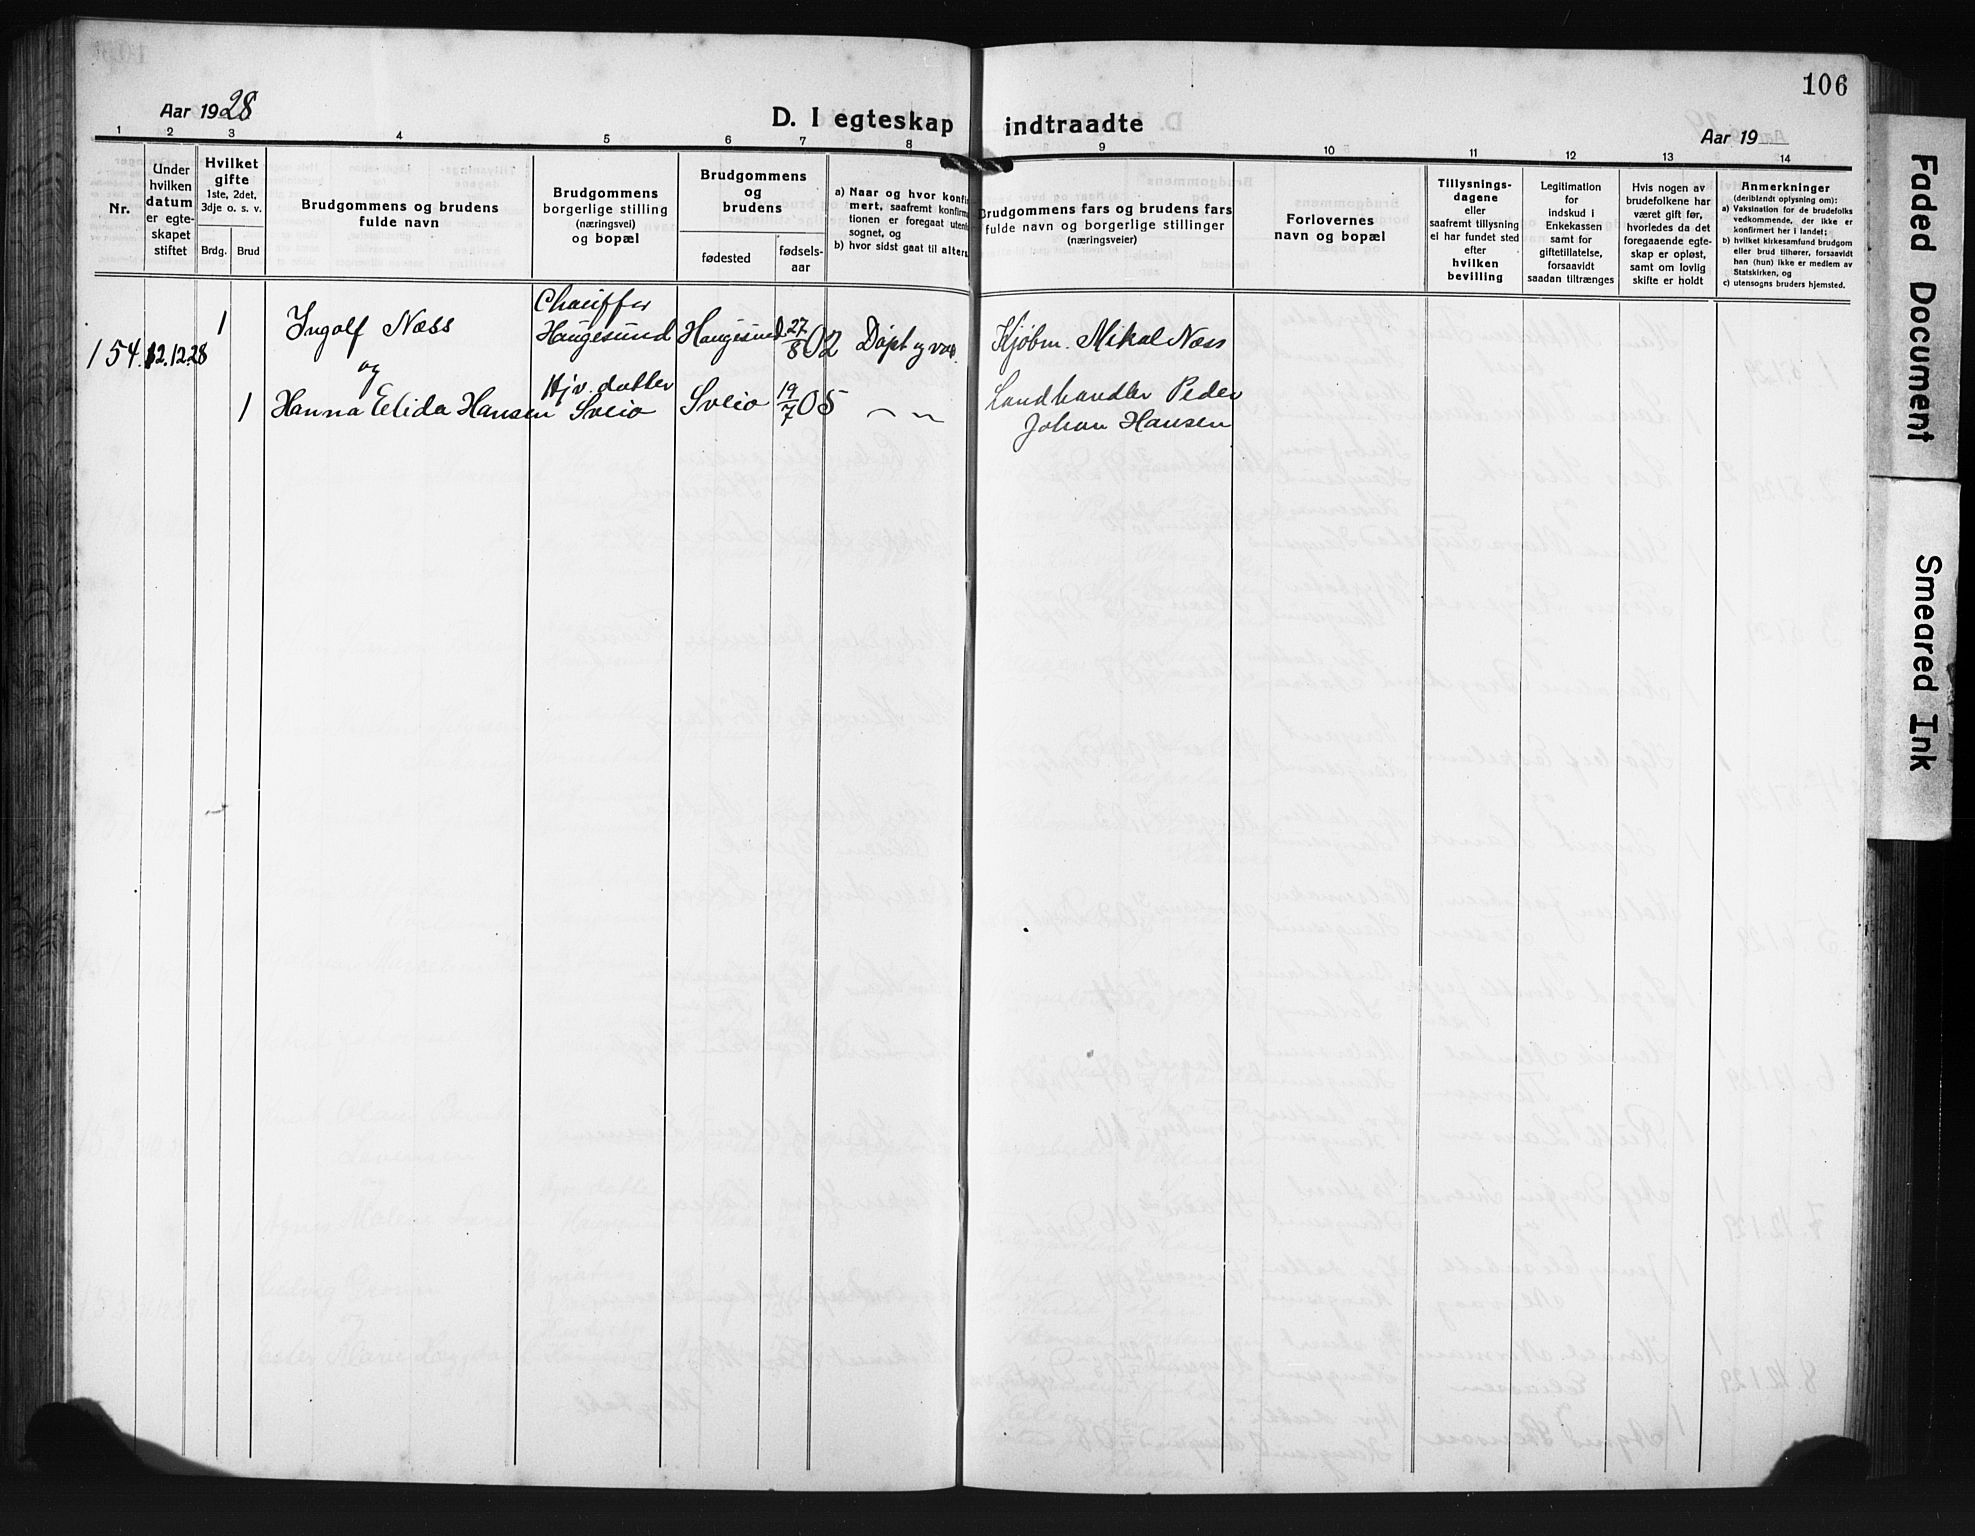 106
Aar 1928
D. I egteskap indtraadte
Aar 19
1 2 3 4 5 6 7 8 9 10 11 12 13 14
Nr.
Under
hvilken
datum
er egte-
skapet
stiftet
Hvilket
gifte
1ste, 2det,
3dje o. s. v.
Brdg. Brud
Brudgommens og brudens
fulde navn
Brudgommens
borgerlige stilling
(næringsvei)
og bopæl
Brudgommens
og
brudens
fødested
fødsels-
aar
a) Naar og hvor konfir-
mert, saafremt konfirma-
tionen er foregaat utenfor
sognet, og
b) hvor sidst gaat til alters
Brudgommens fars og brudens fars
fulde navn og borgerlige stillinger
(næringsveier)
Forlovernes
navn og bopæl
Tillysnings-
dagene
eller
saafremt tillysning
ei har fundet sted
efter
hvilken
bevilling
Legitimation
for
indskud i
Enkekassen
samt for
giftetillatelse,
forsaavidt
saadan tiltrænges
Hvis nogen av
brudefolkene har
været gift før,
hvorledes da det
foregaaende egte-
skap er opløst,
samt om lovlig
skifte er holdt
Anmerkninger
(deriblandt oplysning om):
a) Vaksination for de brudefolks
vedkommende, der ikke er
konfirmert her i landet;
b) hvilket kirkesamfund brudgom
eller brud tilhører, forsaavidt
han (hun) ikke er medlem av
Statskirken, og
c) utensogns bruders hjemsted.
154. 12.12.28
1 Ingolf Næss
Chauffør
Haugesund
Haugesund 27/8 02
Døpt og vac.
Kjøbm. Mikal Næss
og
1 Hanna Elida Hansen
Hjv. datter
Sveio
Sveio 19/7 05
Landhandler Peder
Johan Hansen
Faded Document
Smeared Ink